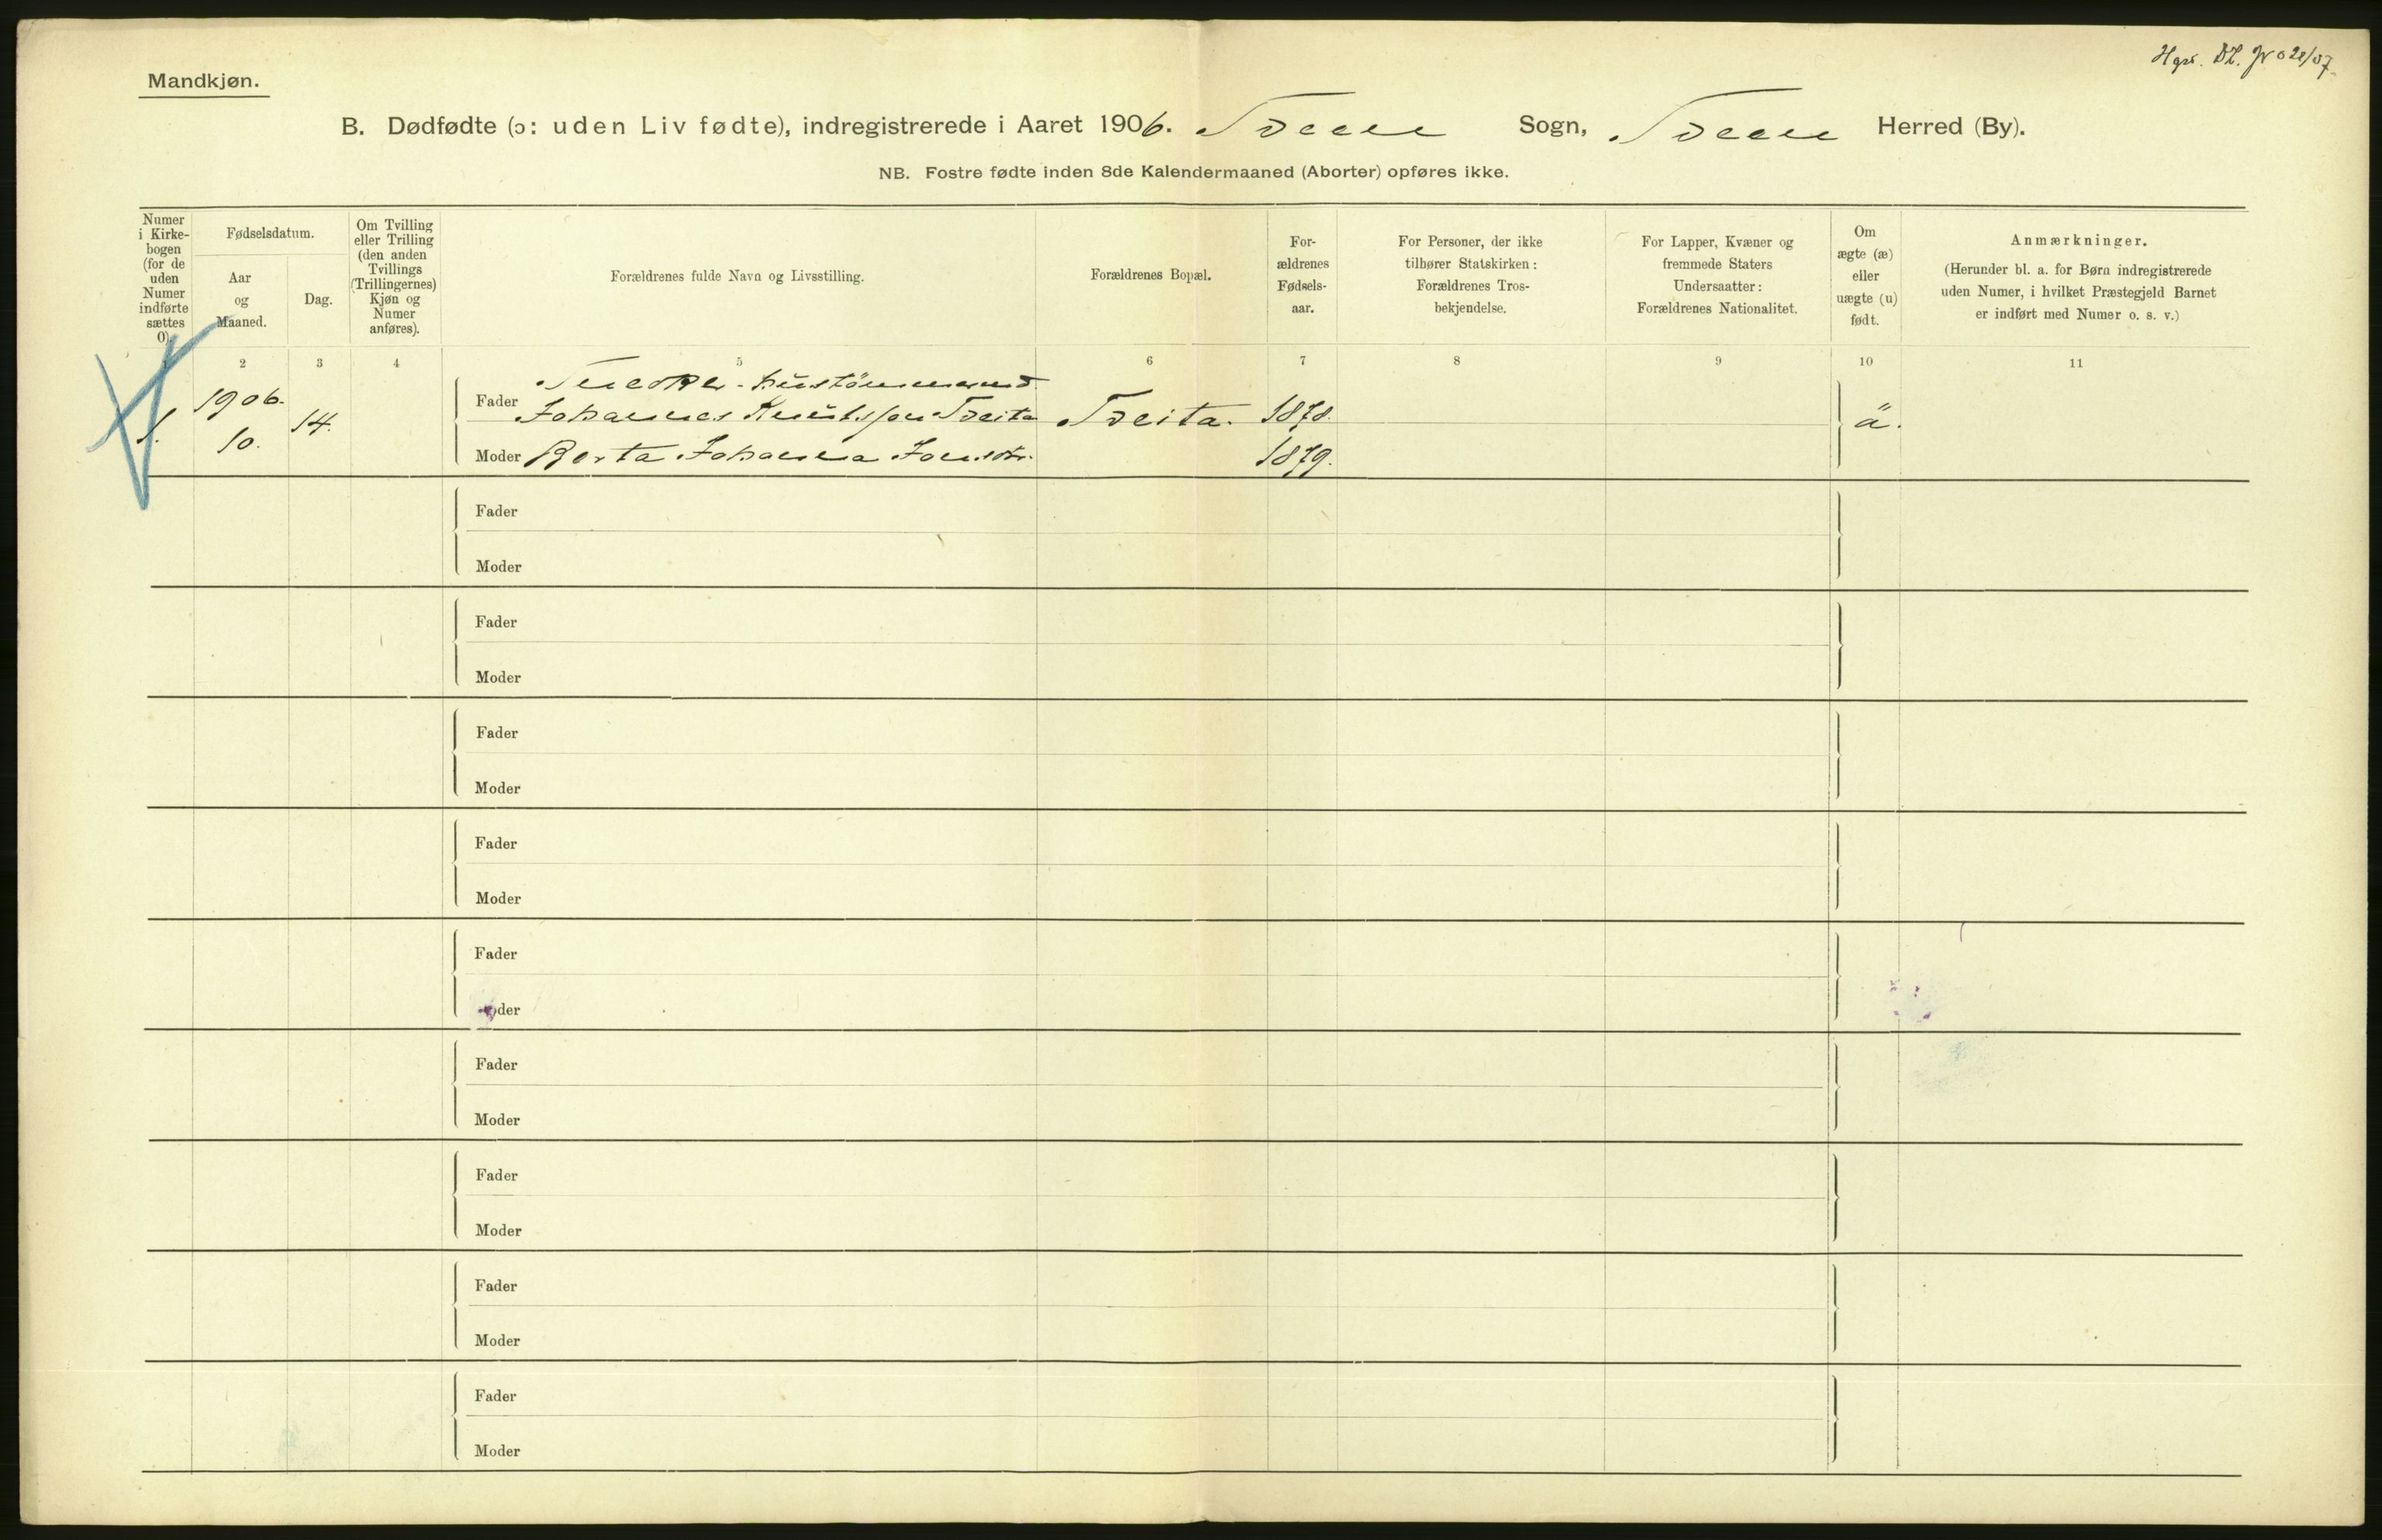 Mandkjøn.
B. Dødfødte (ɔ: uden Liv fødte), indregistrerede i Aaret 1906. Sogn, Herred (By).
NB. Fostre fødte inden 8de Kalendermaaned (Aborter) opføres ikke.
Numer
i Kirke-
bogen
(for de
uden
Numer
indførte
sættes
0).
Fødselsdatum.
Aar
og
Maaned.
Dag.
Om Tvilling
eller Trilling
(den anden
Tvillings
(Trillingernes)
Kjøn og
Numer
anføres).
Forældrenes fulde Navn og Livsstilling.
Forældrenes Bopæl.
For-
ældrenes
Fødsels-
aar.
For Personer, der ikke
tilhører Statskirken:
Forældrenes Tros-
bekjendelse.
For Lapper, Kvæner og
fremmede Staters
Undersaatter:
Forældrenes Nationalitet.
Om
ægte (æ)
eller
uægte (u)
født.
Anmærkninger.
(Herunder bl. a. for Børn indregistrerede
uden Numer, i hvilket Præstegjeld Barnet
er indført med Numer o. s. v.)
2 3 4 5 6 7 8 9 10 11
1. 1906. 10. 14.
Fader Johannes Knutsson Tveita Tveita. 1878. ä.
Moder Berta Johanna 1879.
Fader
Moder
Fader
Moder
Fader
Moder
Fader
Moder
Fader
oder
Fader
Moder
Fader
Moder
Fader
Moder
Fader
Moder